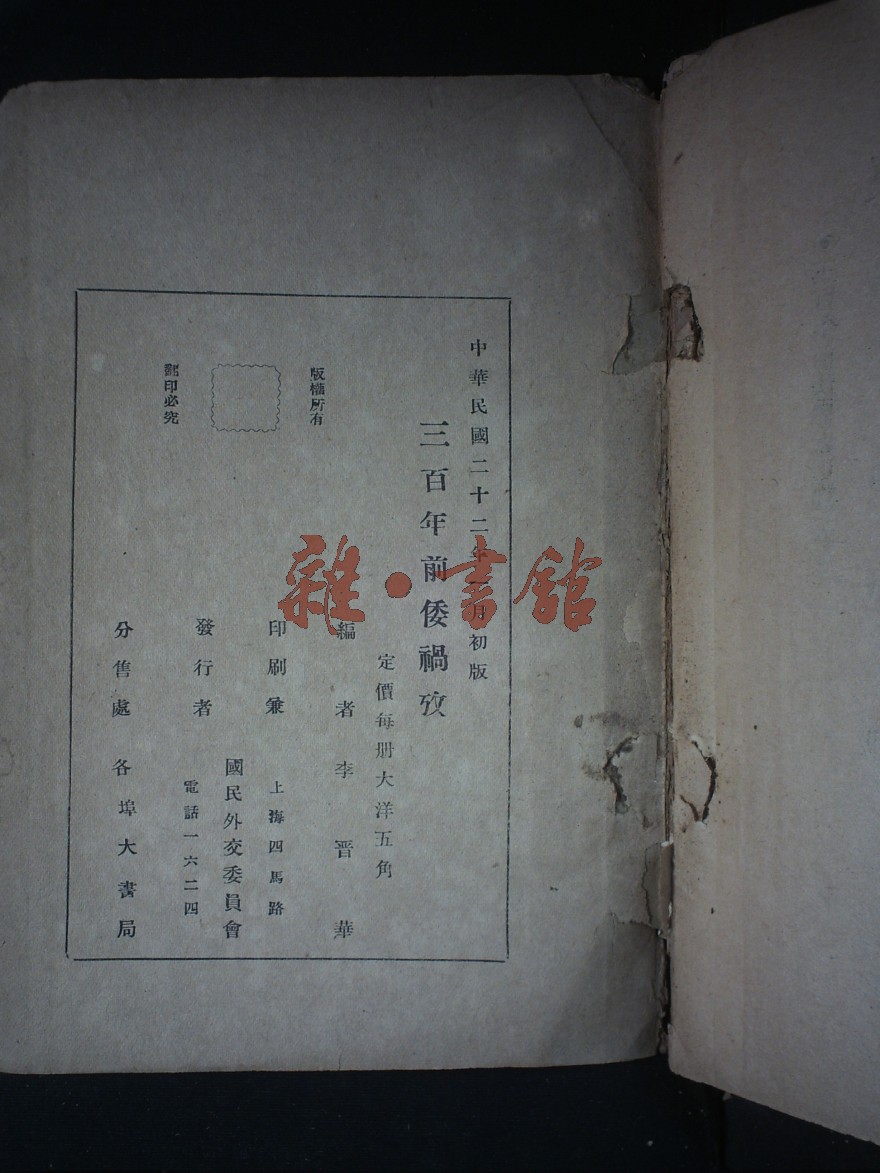 中華民國二十二年一月初版
三百年前倭禍攷
定價每册大洋五角
編者李晋華
印刷兼
發行者
上海四馬路
國民外交委員會
電話一六二四
分售處各埠大書局
版權所有
翻印必究
雜·書舘